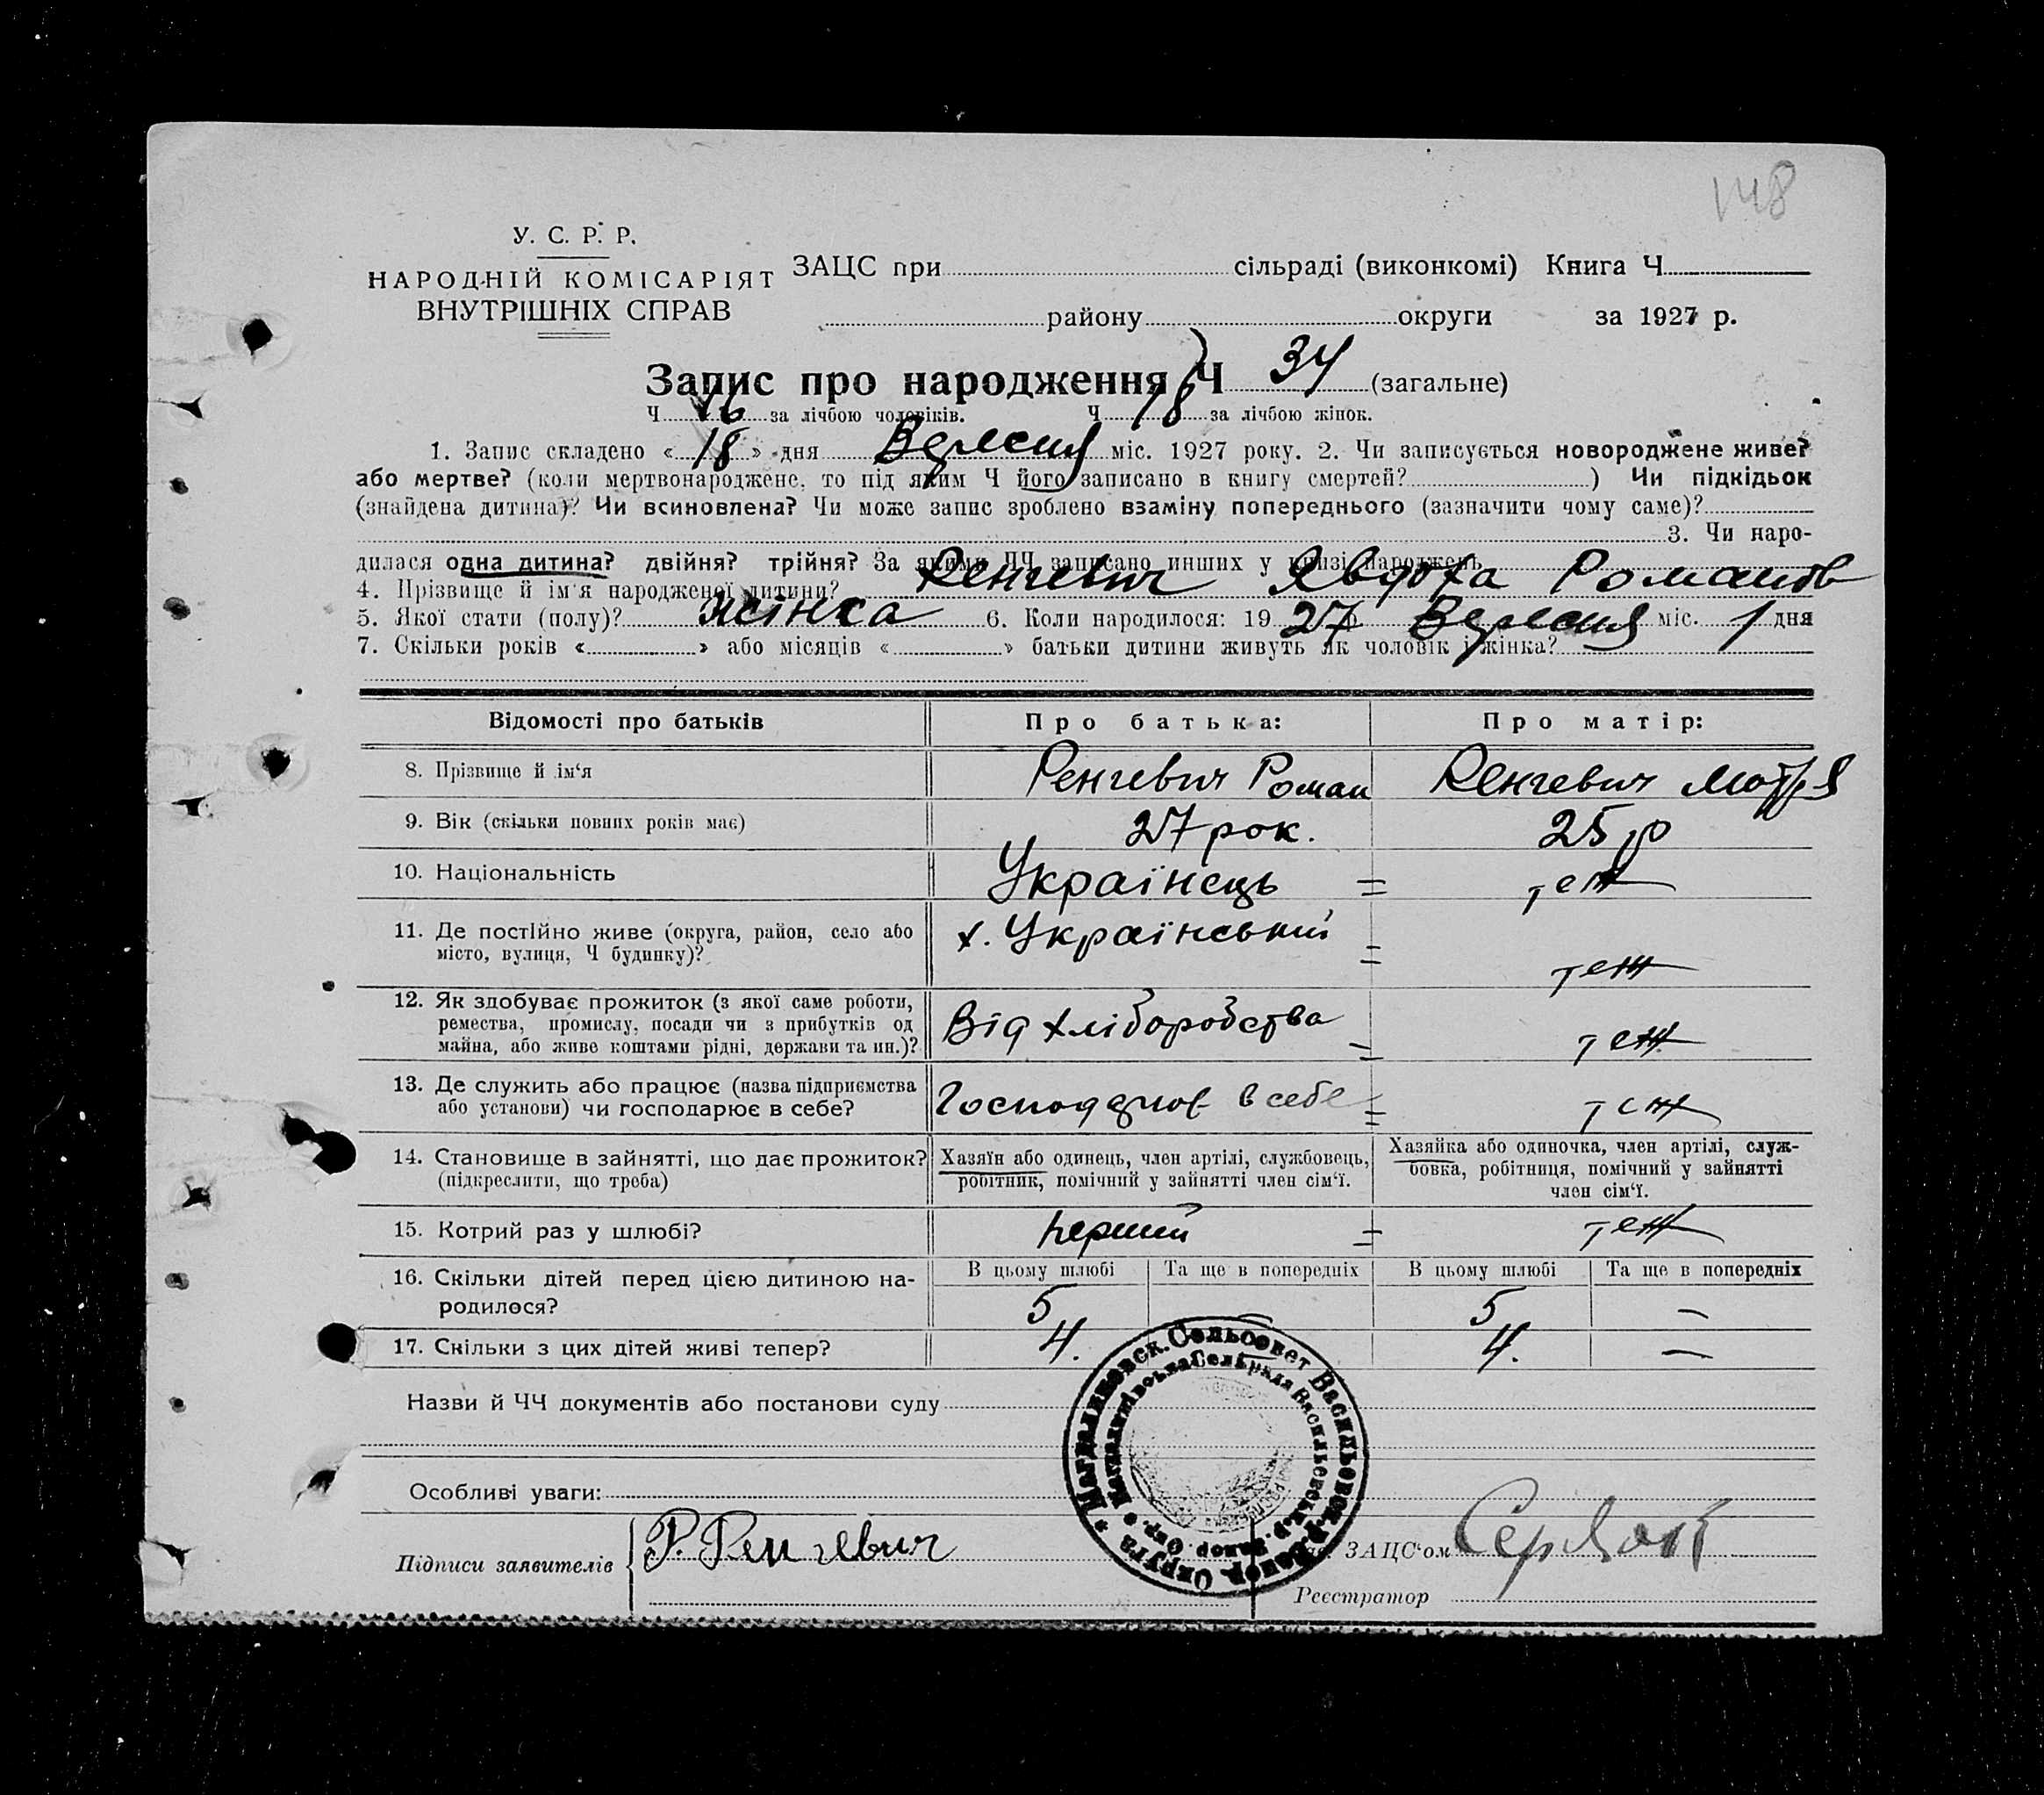 148
У. С. Р. Р.
НАРОДНІЙ КОМІСАРІЯТ
ВНУТРІШНІХ СПРАВ
ЗАЦС при сільраді (виконкомі) Книга Ч
району округи за 1927 р.
Запис про народження Ч 34 (загальне)
Ч 16 за лічбою чоловіків. Ч 18 за лічбою жінок.
1. Запис складено « 18 » дня Вересня міс. 1927 року. 2. Чи записується новороджене живе?
або мертве? (коли мертвонароджене, то під яким Ч його записано в книгу смертей? ) Чи підкідьок
(знайдена дитина)? Чи всиновлена? Чи може запис зроблено взаміну попереднього (зазначити чому саме)?
3. Чи наро-
дилася одна дитина? двійня? трійня? За якими ЧЧ записано инших у книзі народжень
4. Прізвище й ім'я народженої дитини? Ренгевич Явдоха Романов
5. Якої стати (полу)? жінка 6. Коли народилося: 19 27 р Вересня міс. 1 дня
7. Скільки років « » або місяців « » батьки дитини живуть як чоловік і жінка?
Відомості про батьків Про батька: Про матір:
8. Прізвище й ім'я Ренгевич Роман Ренгевич Мотря
9. Вік (скільки повних років має) 27 рок. 25 р
10. Національність Українець = теж
11. Де постійно живе (округа, район, село або
місто, вулиця, Ч будинку)? х. Український = теж
12. Як здобуває прожиток (з якої саме роботи,
ремества, промислу, посади чи з прибутків од
майна, або живе коштами рідні, держави та ин.)? Від хліборобства = теж
13. Де служить або працює (назва підприємства
або установи) чи господарює в себе? в себе = теж
14. Становище в зайнятті, що дає прожиток?
(підкреслити, що треба)
Хазяїн або одинець, член артілі, службовець,
робітник, помічний у зайнятті член сім'ї.
Хазяйка або одиночка, член артілі, служ-
бовка, робітниця, помічний у зайнятті
член сім'ї.
15. Котрий раз у шлюбі? перший = теж
В цьому шлюбі Та ще в попередніх В цьому шлюбі Та ще в попередніх
16. Скільки дітей перед цією дитиною на-
родилося? 5 — 5 —
17. Скільки з цих дітей живі тепер? 4. 4. —
Назви й ЧЧ документів або постанови суду
Особливі уваги:
Підписи заявителів Р. Ренгевич
ЗАЦС'ом
Реєстратор
Магдалиновск. Сельсовет Васильевск. р. Запор. Округа
Магдалинівська Сельрада Васильевськ. р. Запор. Окр.